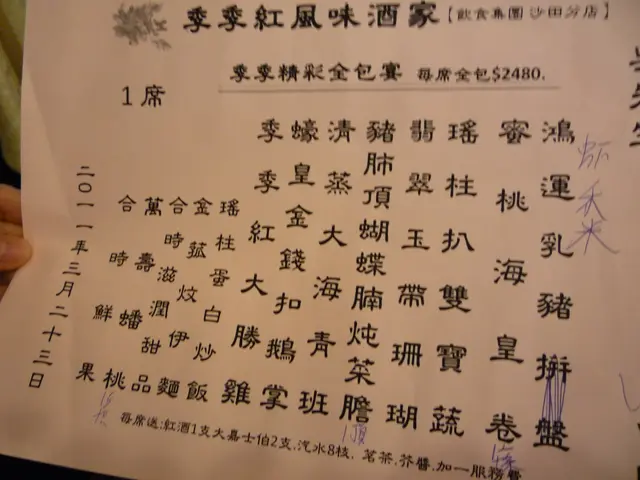 季季紅風味酒家【飲食集團 沙田分店】
季季精彩全包宴 每席全包$2480.
1席
鴻運乳豬拚盤
蜜桃海皇卷
瑤柱扒雙寶蔬
翡翠玉帶珊瑚
豬肺頂蝴蝶腩炖菜膽
清蒸大海青班
蠔皇金錢扣鵝掌
季季紅大勝雞
瑤柱蛋白炒飯
金菰炆伊麵
合時滋潤甜品
萬壽蟠桃
合時鮮果
二0一一年三月二十三日
每席送:紅酒1支大嘉士伯2支,汽水8枝, 茗茶,芥醬,加一服務費